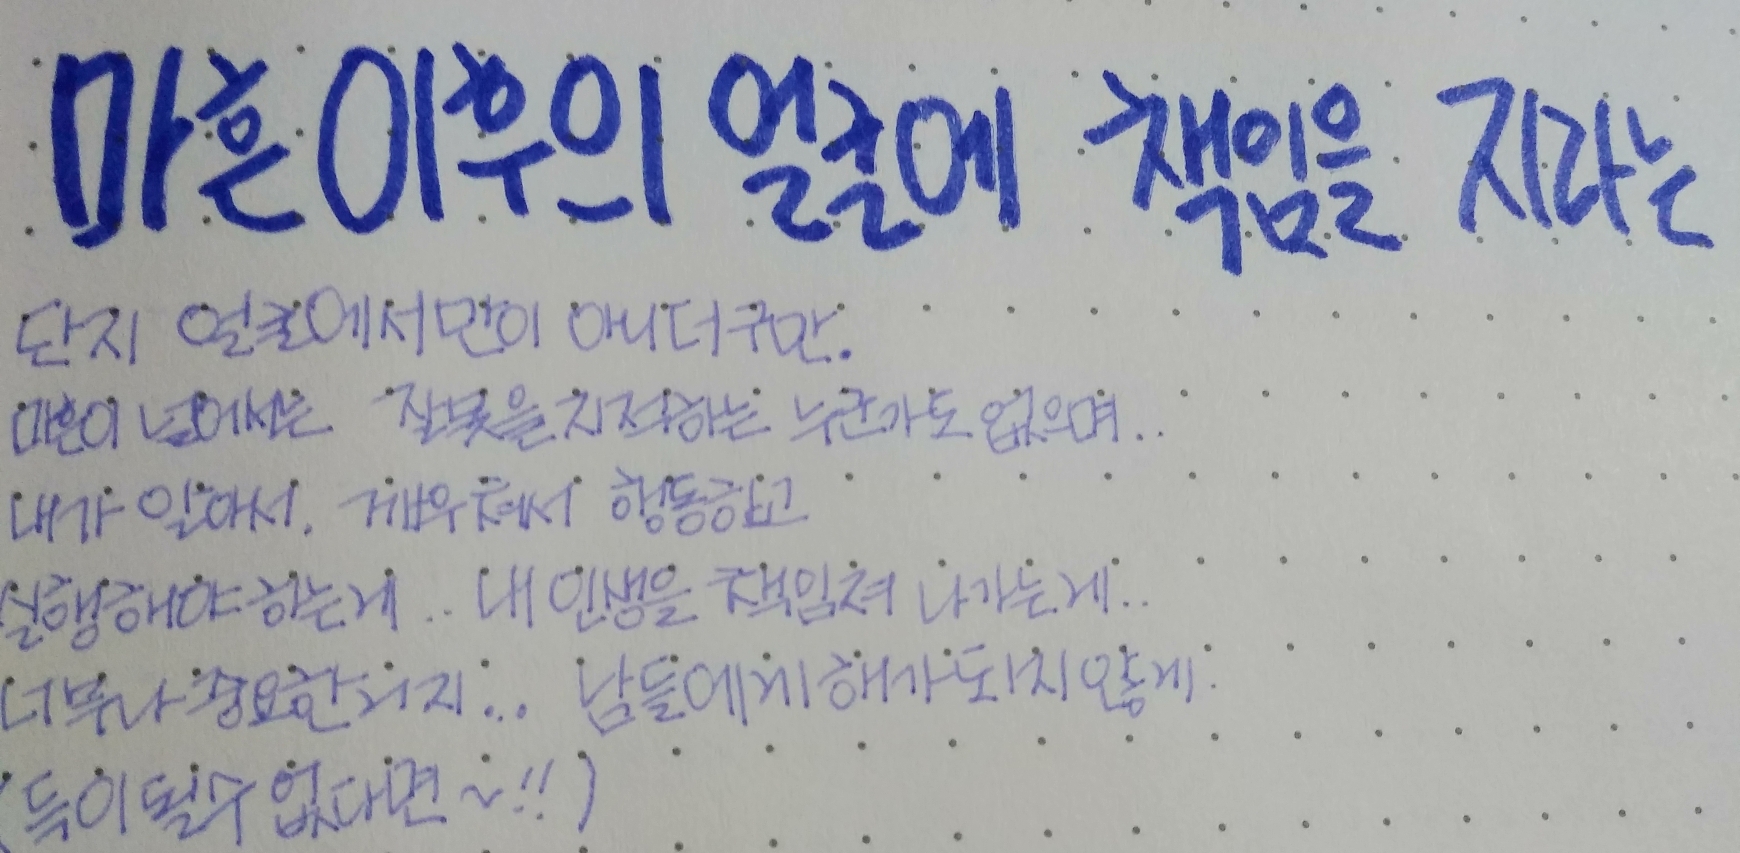 마흔 이후의 얼굴에 책임을 지라는
단지 얼굴에서만이 아니더구만.
마흔이 넘어서는 잘못을 지적하는 누군가도 없으며..
내가 알아서. 깨우쳐서 행동하고
실행해야 하는게.. 내 인생을 책임져 나가는게..
너무나 중요한거지... 남들에게 해가 되지 않게.
(득이 될수 없다면~!!)